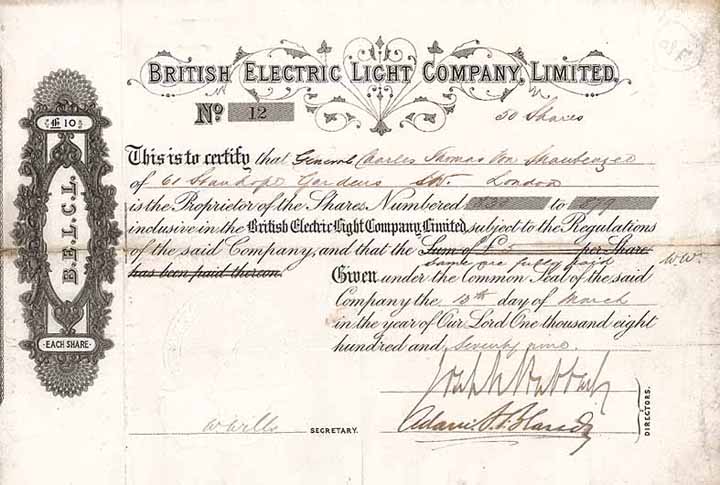 BRITISH ELECTRIC LIGHT COMPANY, LIMITED.
No. 12
50 Shares
£ 10
B.E.L.C.L.
EACH SHARE
This is to certify that General Charles Thomas Van Straubenzee
of 61 Stanhope Gardens SW. London
is the Proprietor of the Shares Numbered 830 to 879
inclusive in the British Electric Light Company, Limited, subject to the Regulations
of the said Company, and that the Sum of £ per Share
same are fully paid W.W.
has been paid thereon.
Given under the Common Seal of the said
Company the 13th day of March
in the year of Our Lord One thousand eight
hundred and Seventy nine.
W Wells SECRETARY.
DIRECTORS.